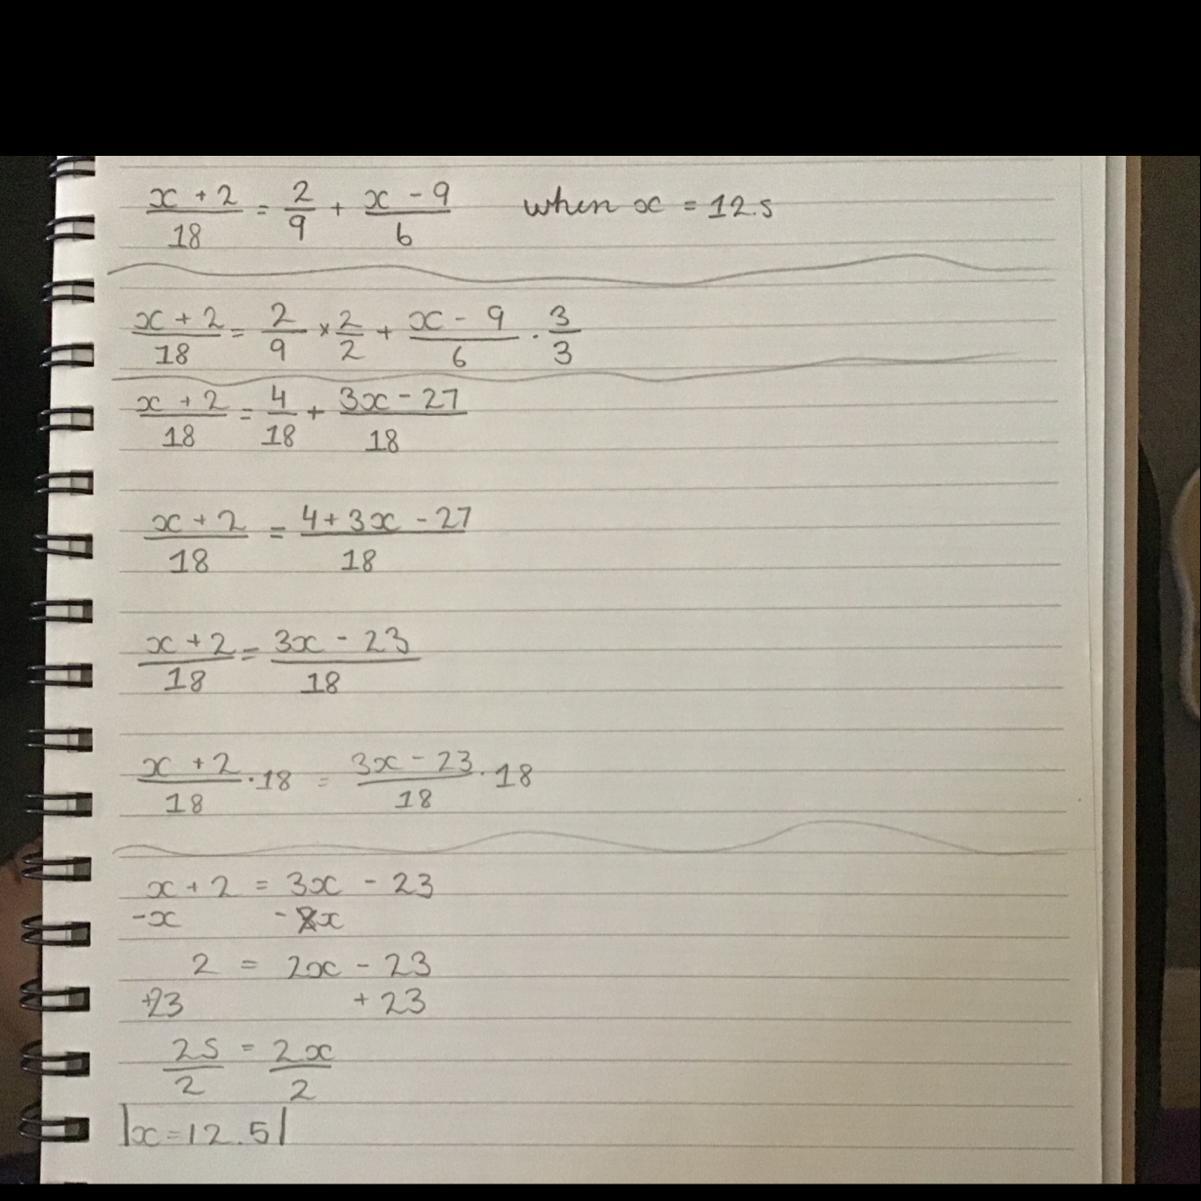 x + 2/18 = 2/9 + x - 9/6 when x = 12.5
x + 2/18 = 2/9 × 2/2 + x - 9/6 · 3/3
x + 2/18 = 4/18 + 3x - 27/18
x + 2/18 = 4 + 3x - 27/18
x + 2/18 = 3x - 23/18
x + 2/18 · 18 = 3x - 23/18 · 18
x + 2 = 3x - 23
-x - x
2 = 2x - 23
+23 + 23
25/2 = 2x/2
|x = 12.5|